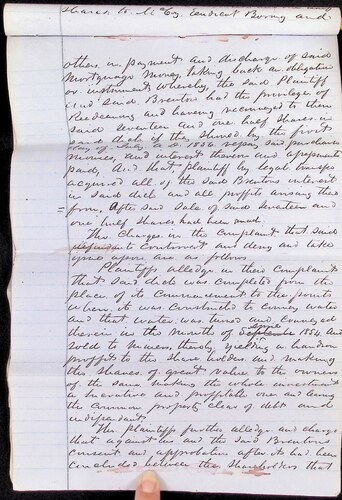 shares to McCoy and
others in payment and discharge of said
Mortgage Money, taking back an obligation
or instrument whereby, the said Plaintiff
and said Brenton had the privilege of
Redeeming and having reconveyed to them
said seventeen and one half shares in
said ditch if they should by the first
day of A.D. 1856 repay said purchase
moneys, and interest thereon and
said, And that plaintiff by legal transfer
acquired all of the said Brentons interest
in said ditch and all profits arising there
from, After said Sale of said seventeen and
one half shares had been made
The Charges in the Complaint that said
to Controvert and deny and take
issue upon are as follows
Plaintiffs alledge in their Complaint
that said ditch was completed from the
place of its Commencement to the points
where it was Constructed to Convey water
and that water was turned and Conveyed
therein in the Month of 1854 and
sold to Miners, thereby yielding a handsome
profit to the share holders and making
the shares of great value to the owners
of the same making the whole investment
a lucrative and profitable one and leaving
the Common property clear of debt and
independent
The Plaintiffs further alledge and charge
that against his and the said Brentons
Consent and approbation after it had been
concluded between the shareholders that